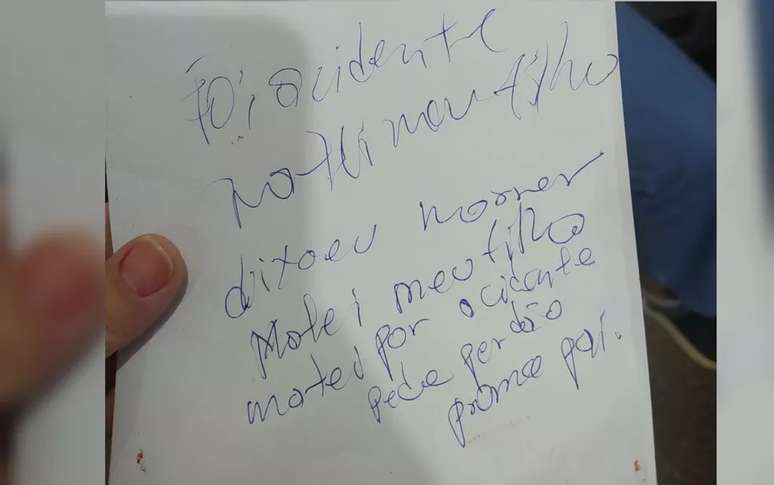 Foi acidente
matei meu filho
dixa eu morrer
Matei meu filho
matei por acidente
pede perdão
prometo pai.